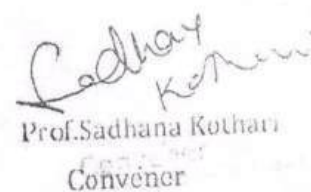 Sadhay
Kothari
Prof.Sadhana Kothari
Convener